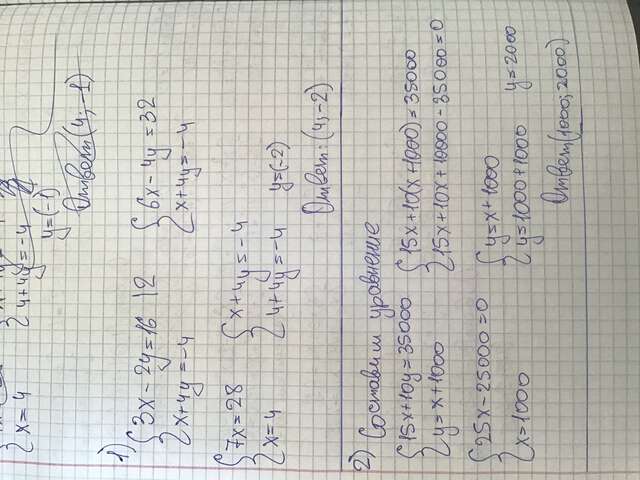 {x=4 {4+4y=-4
y=(-1)
Ответ(4;-1)
1) {3x-2y=16 |2 {6x-4y=32
{x+4y=-4 {x+4y=-4
{7x=28 {x+4y=-4
{x=4 {4+4y=-4 y=(-2)
Ответ: (4;-2)
2) Составим уравнение
{15x+10y=35000 {15x+10(x+1000)=35000
{y=x+1000 {15x+10x+10000-35000=0
{25x-25000=0 {y=x+1000
{x=1000 {y=1000+1000 y=2000
Ответ(1000; 2000)